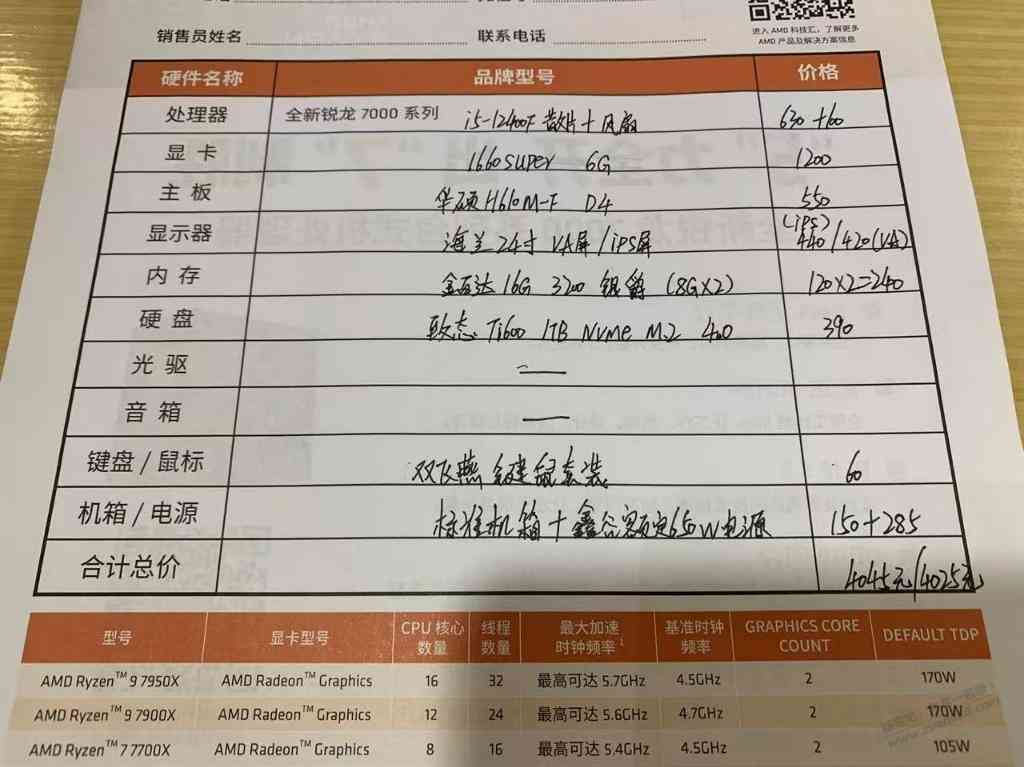 销售员姓名 联系电话
进入 AMD 科技汇，了解更多
AMD 产品及解决方案信息
硬件名称 品牌型号 价格
处理器 全新锐龙 7000 系列 i5-12400F 散片+风扇 630+60
显卡 1660super 6G 1200
主板 华硕H610M-F D4 550
显示器 海兰24寸 VA屏/iPS屏 (iPS) 440/420(VA)
内存 金百达 16G 3200 银爵 (8G×2) 120×2=240
硬盘 致态 Ti600 1TB Nvme M.2 4.0 390
光驱 —
音箱 —
键盘/鼠标 双飞燕 键鼠套装 60
机箱/电源 标准机箱+鑫谷额定650W电源 150+285
合计总价 4045元/4025元
型号 显卡型号 CPU 核心数量 线程数量 最大加速时钟频率1 基准时钟频率 GRAPHICS CORE COUNT DEFAULT TDP
AMD Ryzen™ 9 7950X AMD Radeon™ Graphics 16 32 最高可达 5.7GHz 4.5GHz 2 170W
AMD Ryzen™ 9 7900X AMD Radeon™ Graphics 12 24 最高可达 5.6GHz 4.7GHz 2 170W
AMD Ryzen™ 7 7700X AMD Radeon™ Graphics 8 16 最高可达 5.4GHz 4.5GHz 2 105W